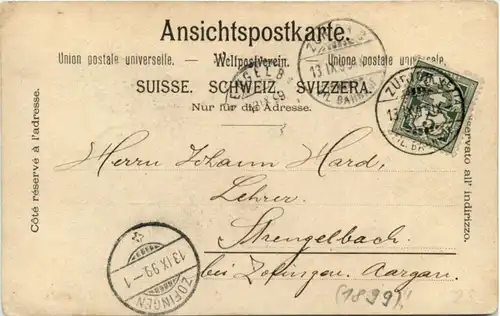 Ansichtspostkarte.
Union postale universelle. — Weltpostverein. — Unione postale universale.
SUISSE. SCHWEIZ. SVIZZERA.
Nur für die Adresse.
Côté réservé à l'adresse.
13 IX 99
13
Herrn Johann Hard,
Lehrer.
Strengelbach.
bei Zofingen. Aargau.
13 IX 99 - 1
ZOFINGEN
(1899)